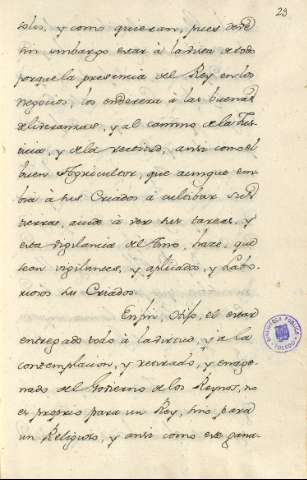 23
solo, y como quieran, pues deve
sin embargo estar à la vista de todo
porque la presencia del Rey en los
negocios, los enderera à las buenas
deliveranzas, y al camino de la Jus-
ticia, y de la rectitud, ansi como el
buen Agricultor, que aunque em-
bia à sus Criados à cultivar sus
tierras, acude à ver sus tareas, y
esta vigilancia del Amo, haze, que
sean vigilantes, y aplicados, y labo-
riosos sus Criados.
En fin, dijo, el estar
entregado solo à la virtud, y à la
contemplacion, y retirado, y enage-
nado del Govierno de los Reynos, no
es proprio para un Rey, sino para
un Religioso, y ansi como este gana-
BIBLIOTECA PUBLICA
TOLEDO